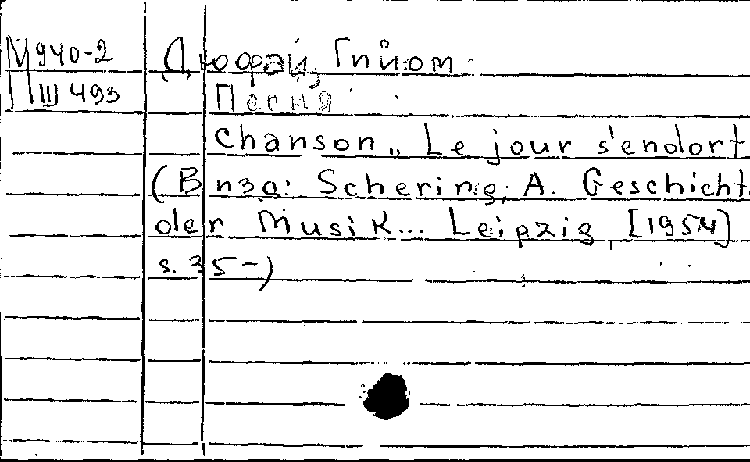 М940-2 Дюфай, Гийом.
П III 493 Песня
Chanson „ Le jour s'endort
(В изд: Schering, A. Geschicht
der Musik... Leipzig, [1954]
s. 35-)